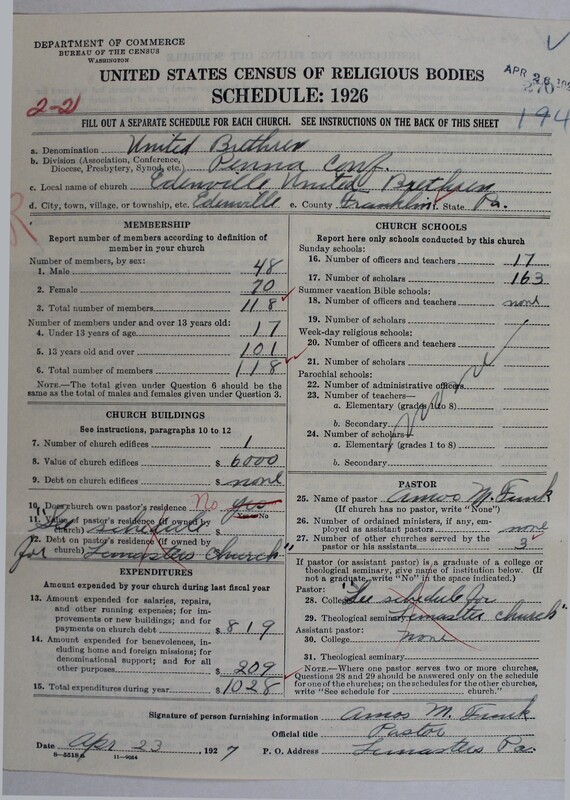 DEPARTMENT OF COMMERCE
BUREAU OF THE CENSUS
WASHINGTON
APR 26
270
194
2-21
UNITED STATES CENSUS OF RELIGIOUS BODIES
SCHEDULE: 1926
FILL OUT A SEPARATE SCHEDULE FOR EACH CHURCH. SEE INSTRUCTIONS ON THE BACK OF THIS SHEET
a. Denomination United Brethren
b. Division (Association, Conference, Diocese, Presbytery, Synod, etc. Penna Conf.
c. Local name of church Edenville United Brethren
d. City, town, village, or township, etc. Edenville e. County Franklin f. State Pa.
MEMBERSHIP
Report number of members according to definition of member in your church
Number of members, by sex:
1. Male 48
2. Female 70
3. Total number of members 118
Number of members under and over 13 years old:
4. Under 13 years of age 17
5. 13 years old and over 101
6. Total number of members 118
NOTE.—The total given under Question 6 should be the same as the total of males and females given under Question 3.
CHURCH BUILDINGS
See instructions, paragraphs 10 to 12
7. Number of church edifices 1
8. Value of church edifices $ 6000
9. Debt on church edifices $ none
10. Does church own pastor's residence No Yes
Yes—No
11. Value of pastor's residence (if owned by church) $
12. Debt on pastor's residence (if owned by church) $
"See schedule
for Lemasters Church"
EXPENDITURES
Amount expended by your church during last fiscal year
13. Amount expended for salaries, repairs, and other running expenses; for improvements or new buildings; and for payments on church debt $ 819
14. Amount expended for benevolences, including home and foreign missions; for denominational support; and for all other purposes $ 209
15. Total expenditures during year $ 1028
CHURCH SCHOOLS
Report here only schools conducted by this church
Sunday schools:
16. Number of officers and teachers 17
17. Number of scholars 163
Summer vacation Bible schools:
18. Number of officers and teachers none
19. Number of scholars
Week-day religious schools:
20. Number of officers and teachers
21. Number of scholars
Parochial schools:
22. Number of administrative officers
23. Number of teachers—
a. Elementary (grades 1 to 8)
b. Secondary
24. Number of scholars—
a. Elementary (grades 1 to 8)
b. Secondary
PASTOR
25. Name of pastor Amos M. Funk
(If church has no pastor, write "None")
26. Number of ordained ministers, if any, employed as assistant pastors none
27. Number of other churches served by the pastor or his assistants 3
If pastor (or assistant pastor) is a graduate of a college or theological seminary, give name of institution below. (If not a graduate, write "No" in the space indicated.)
Pastor:
28. College "See schedule for
29. Theological seminary Lemaster church"
Assistant pastor:
30. College none
31. Theological seminary
NOTE.—Where one pastor serves two or more churches, Questions 28 and 29 should be answered only on the schedule for one of the churches; on the schedules for the other churches, write "See schedule for church."
Signature of person furnishing information Amos M. Funk
Official title Pastor
Date Apr 23, 1927 P. O. Address Lemasters Pa.
8—5518a 11—9054